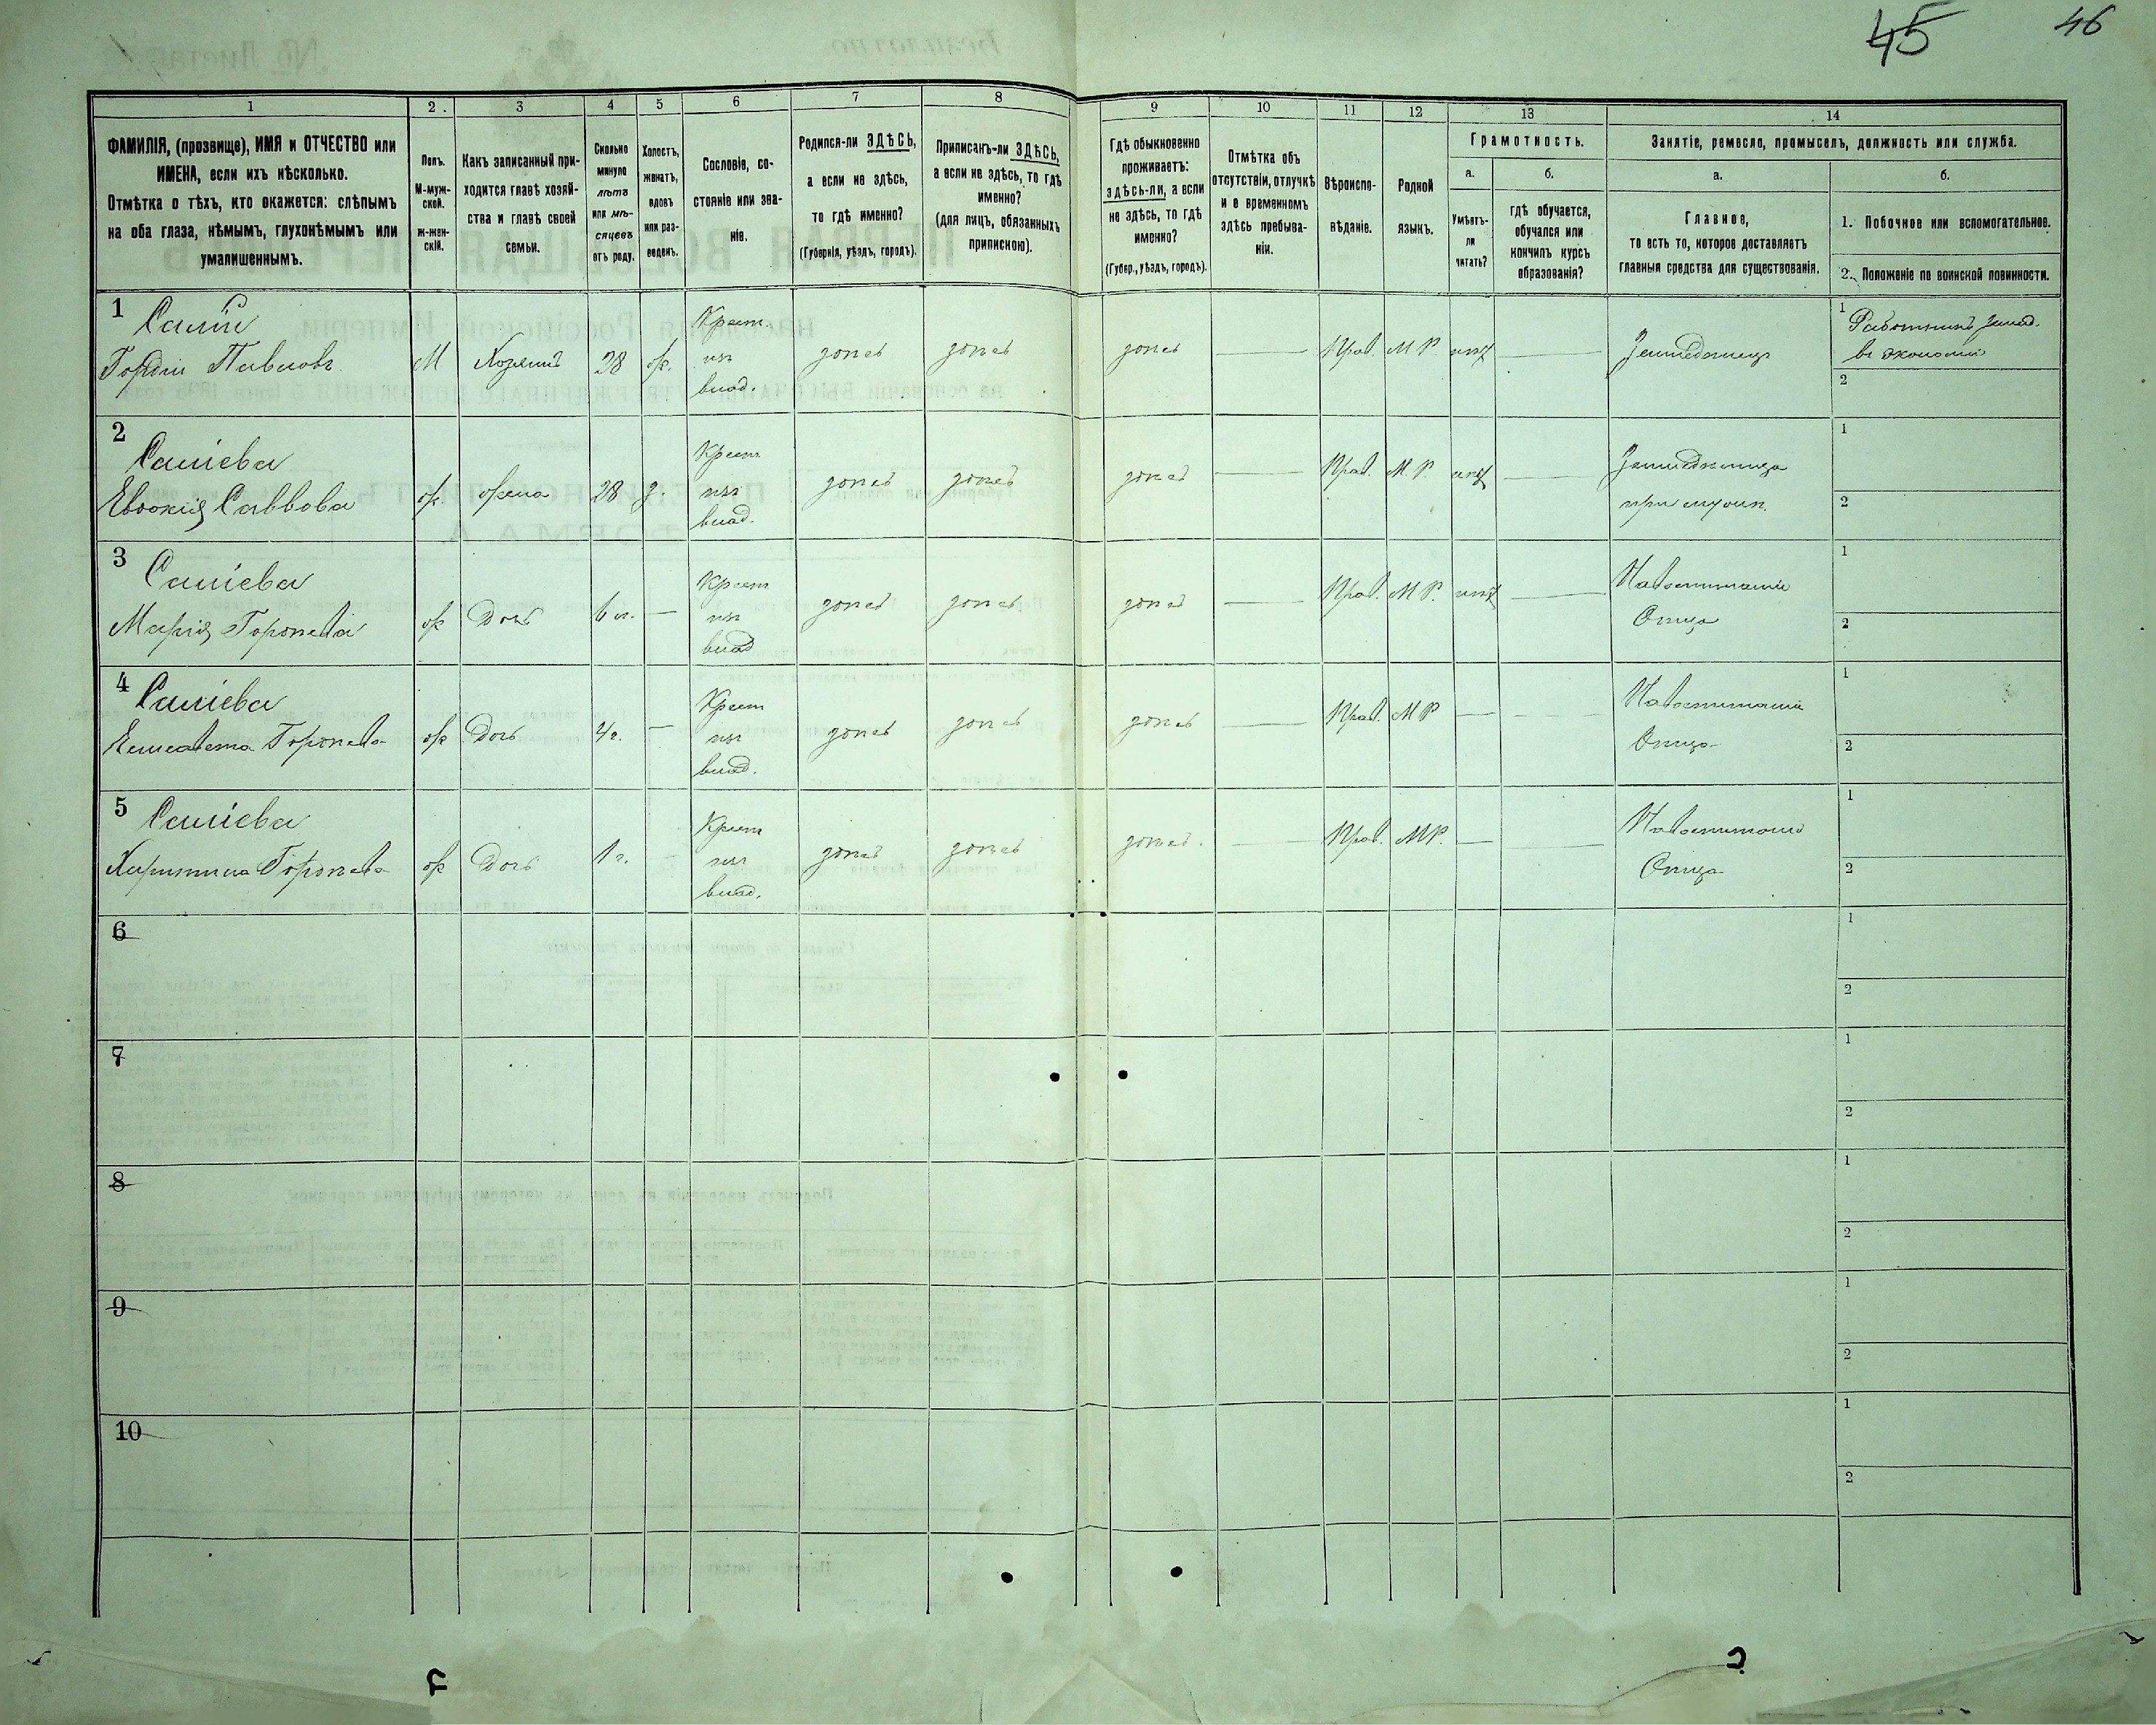 45 46
1 2. 3 4 5 6 7 8 9 10 11 12 13 14
ФАМИЛІЯ, (прозвище), ИМЯ и ОТЧЕСТВО или
ИМЕНА, если ихъ нѣсколько.
Отмѣтка о тѣхъ, кто окажется: слѣпымъ
на оба глаза, нѣмымъ, глухонѣмымъ или
умалишеннымъ.
Полъ.
М-муж-
ской.
ж-жен-
скій.
Какъ записанный при-
ходится главѣ хозяй-
ства и главѣ своей
семьи.
Сколько
минуло
лѣтъ
или мѣ-
сяцевъ
отъ роду.
Холостъ,
женатъ,
вдовъ
или раз-
веденъ.
Сословіе, со-
стояніе или зва-
ніе.
Родился-ли ЗДѢСЬ,
а если не здѣсь,
то гдѣ именно?
(Губернія, уѣздъ, городъ).
Приписанъ-ли ЗДѢСЬ,
а если не здѣсь, то гдѣ
именно?
(для лицъ, обязанныхъ
припискою).
Гдѣ обыкновенно
проживаетъ:
здѣсь-ли, а если
не здѣсь, то гдѣ
именно?
(Губер., уѣздъ, городъ).
Отмѣтка объ
отсутствіи, отлучкѣ
и о временномъ
здѣсь пребыва-
ніи.
Вѣроиспо-
вѣданіе.
Родной
языкъ.
Грамотность.
а. б.
Умѣетъ-
ли
читать?
гдѣ обучается,
обучался или
кончилъ курсъ
образованія?
Занятіе, ремесло, промыселъ, должность или служба.
а. б.
Главное,
то есть то, которое доставляетъ
главныя средства для существованія.
1. Побочное или вспомогательное.
2. Положеніе по воинской повинности.
1 Салій
Гордій Павловъ М Хозяинъ 28 ж. Крест. изъ влад. здѣсь здѣсь здѣсь — Прав. М Р нѣтъ — Земледѣлецъ
1 Работникъ земл.
въ экономіи
2
2 Саліева
Евдокія Саввова ж. жена 28 з. Крест изъ влад. здѣсь здѣсь здѣсь — Прав. М. Р. нѣтъ — Земледѣлица
при мужѣ.
1
2
3 Саліева
Марія Гордѣева ж Дочь 6 л. — Крест изъ влад здѣсь здѣсь здѣсь — Прав. М Р. нѣтъ —
Отца
1
2
4 Саліева
Елисавета Гордѣева ж Дочь 4 г. — Крест изъ влад. здѣсь здѣсь здѣсь — Прав. М Р — —
Отца
1
2
5 Саліева
Христина Гордѣева ж Дочь 1 г. - Крест изъ влад. здѣсь здѣсь здѣсь. — Прав. М Р. — —
Отца
1
2
6
1
2
7
1
2
8
1
2
9
1
2
10
1
2